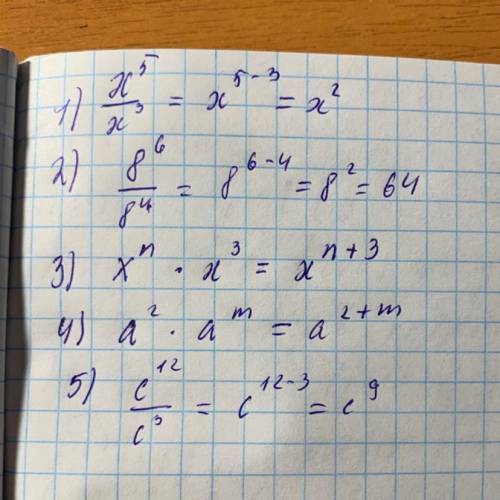 1) x⁵/x³ = x⁵⁻³ = x²
2) 8⁶/8⁴ = 8⁶⁻⁴ = 8² = 64
3) xⁿ · x³ = xⁿ⁺³
4) a² · aᵐ = a²⁺ᵐ
5) c¹²/c³ = c¹²⁻³ = c⁹